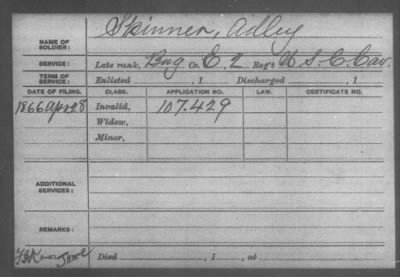 NAME OF SOLDIER: Skinner, Adley
SERVICE: Late rank, Bug Co. E, 2 Reg't U S C Cav.
TERM OF SERVICE: Enlisted , 1 Discharged , 1
DATE OF FILING. CLASS. APPLICATION NO. LAW. CERTIFICATE NO.
1866 Apr 28 Invalid, 107.429
Widow,
Minor,
ADDITIONAL SERVICES:
REMARKS:
Died , 1 , at